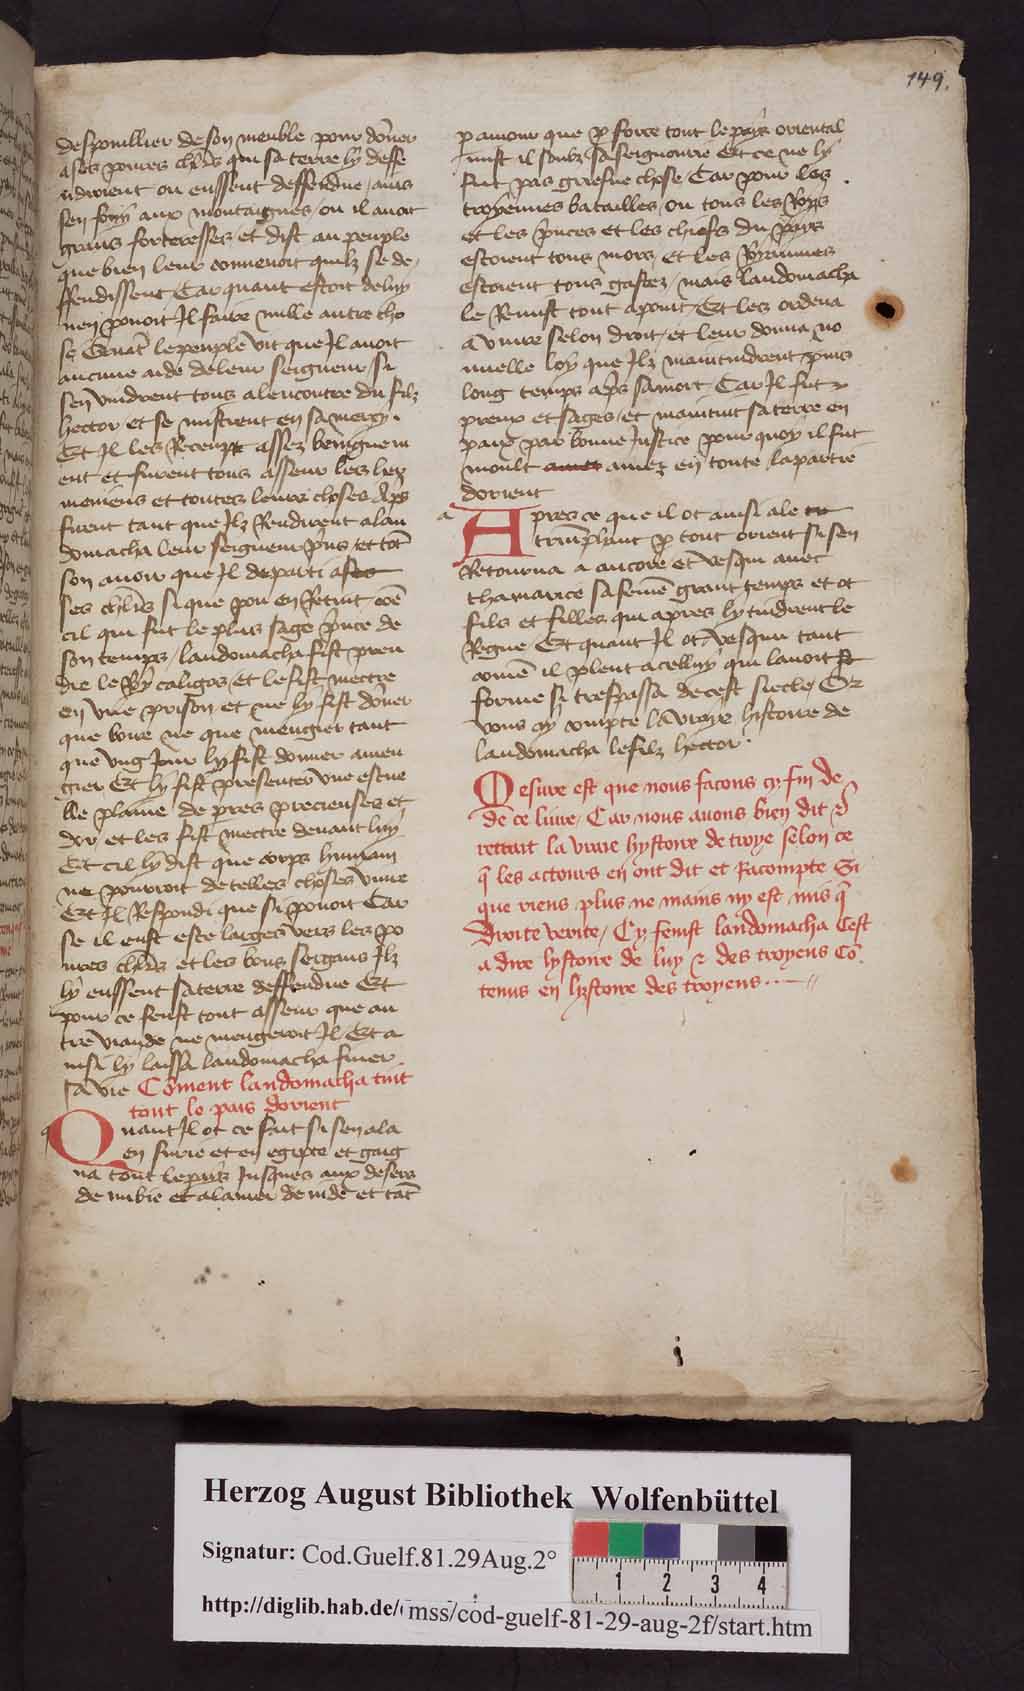 149.
despouillier de son meuble pour doner
a ses poures chlrs qui sa terre ly deffe
ndroient ou eussent deffendue / ains
sen fouy aux montaignes / ou il auoit
grans forteresses et dist au peuple
que bien leur conuenoit quilz se de
ffendissent / Car quant estoit de luy
nen pouoit Il faire nulle autre cho
se Quat le peuple vit que Il auoit
aucune aide de leur seigneur si
sen vindrent tous alencontre du filz
hector et se mistrent en sa mercy.
Et Il les Receupt assez benignem
ent et furent tous asseur les hey
meniens et toutes leurs choses Aps
furent tant que Ilz Rendirent a lan
domacha leur seigneur pris / et tot
son auoir que Il departi a ses
ses chlrs si que pou en Retint coe
cil qui fut le plus sage pnce de
son temps / landomacha fist pren
dre le Roy caligos / et le fist mectre
en vne prison et ne ly fist doner
que boire ne que mengier tant
que vng Jour ly fist donner amen
gier Et ly fist presenter vne escue
lle plaine de pierres precieuses et
dor et les fist mectre deuant luy
Et cil ly dist que corps humain
ne pourroit de telles choses viure
Et Il Respondi que si pouoit Car
se il eust este larges vers les po
ures chlrs et les bons sergans Ilz
ly eussent sa terre deffendue Et
pour ce feust tout asseur que au
tre viande ne mengeroit Il Et a
insi ly laissa landomacha finer
sa vie Coment landomacha tint
tout le pais dorient
q Quant Il ot ce fait si sen ala
en surie et en egipte et gaig
na tout le pais Jusques aux desers
de nubie et a la mer de inde et tat
p amour que p force tout le pays oriental
mist il soubz sa seignourie Et ce ne ly
fut pas griefue chose / Car pour les
troyennes batailles / ou tous les Roys
et les pnces et les chiefs du pays
estoient tous mors / et les Royaumes
estoient tous gastez / mais landomacha
le Remist tout apoint / Et les ordena
a viure selon droit / et leur donna no
uuelle loy que Ilz maintindrent puis
long temps aps sa mort / Car Il fut
preux et sages / et maintint sa terre en
paix par bonne Justice pour quoy il fut
moult amez en toute la partie
dorient
a Apres ce que il ot ainsi ale
triumphant p tout orient si sen
Retourna a ancore et vesqui auec
thamarice sa feme grant temps et ot
fils et filles qui apres ly tindrent le
Regne Et quant Il ot vesqui tant
come il pleut a celluy qui lauoit
forme si trespassa de cest siecle / Or
vous ay compte la vraye histoire de
landomacha le filz hector.
Mesure est que nous facons cy fin de
de ce liure / Car nous auons bien dit &
retrait la vraie hystoire de troye selon ce
q les acteurs en ont dit et Racompte Si
que riens plus ne mains ny est mis q
droite verite / Cy fenist landomacha Cest
a dire hystoire de luy & des troyens Co
tenus en hystoire des troyens
Herzog August Bibliothek Wolfenbüttel
Signatur: Cod.Guelf.81.29Aug.2°
http://diglib.hab.de/mss/cod-guelf-81-29-aug-2f/start.htm
1 2 3 4